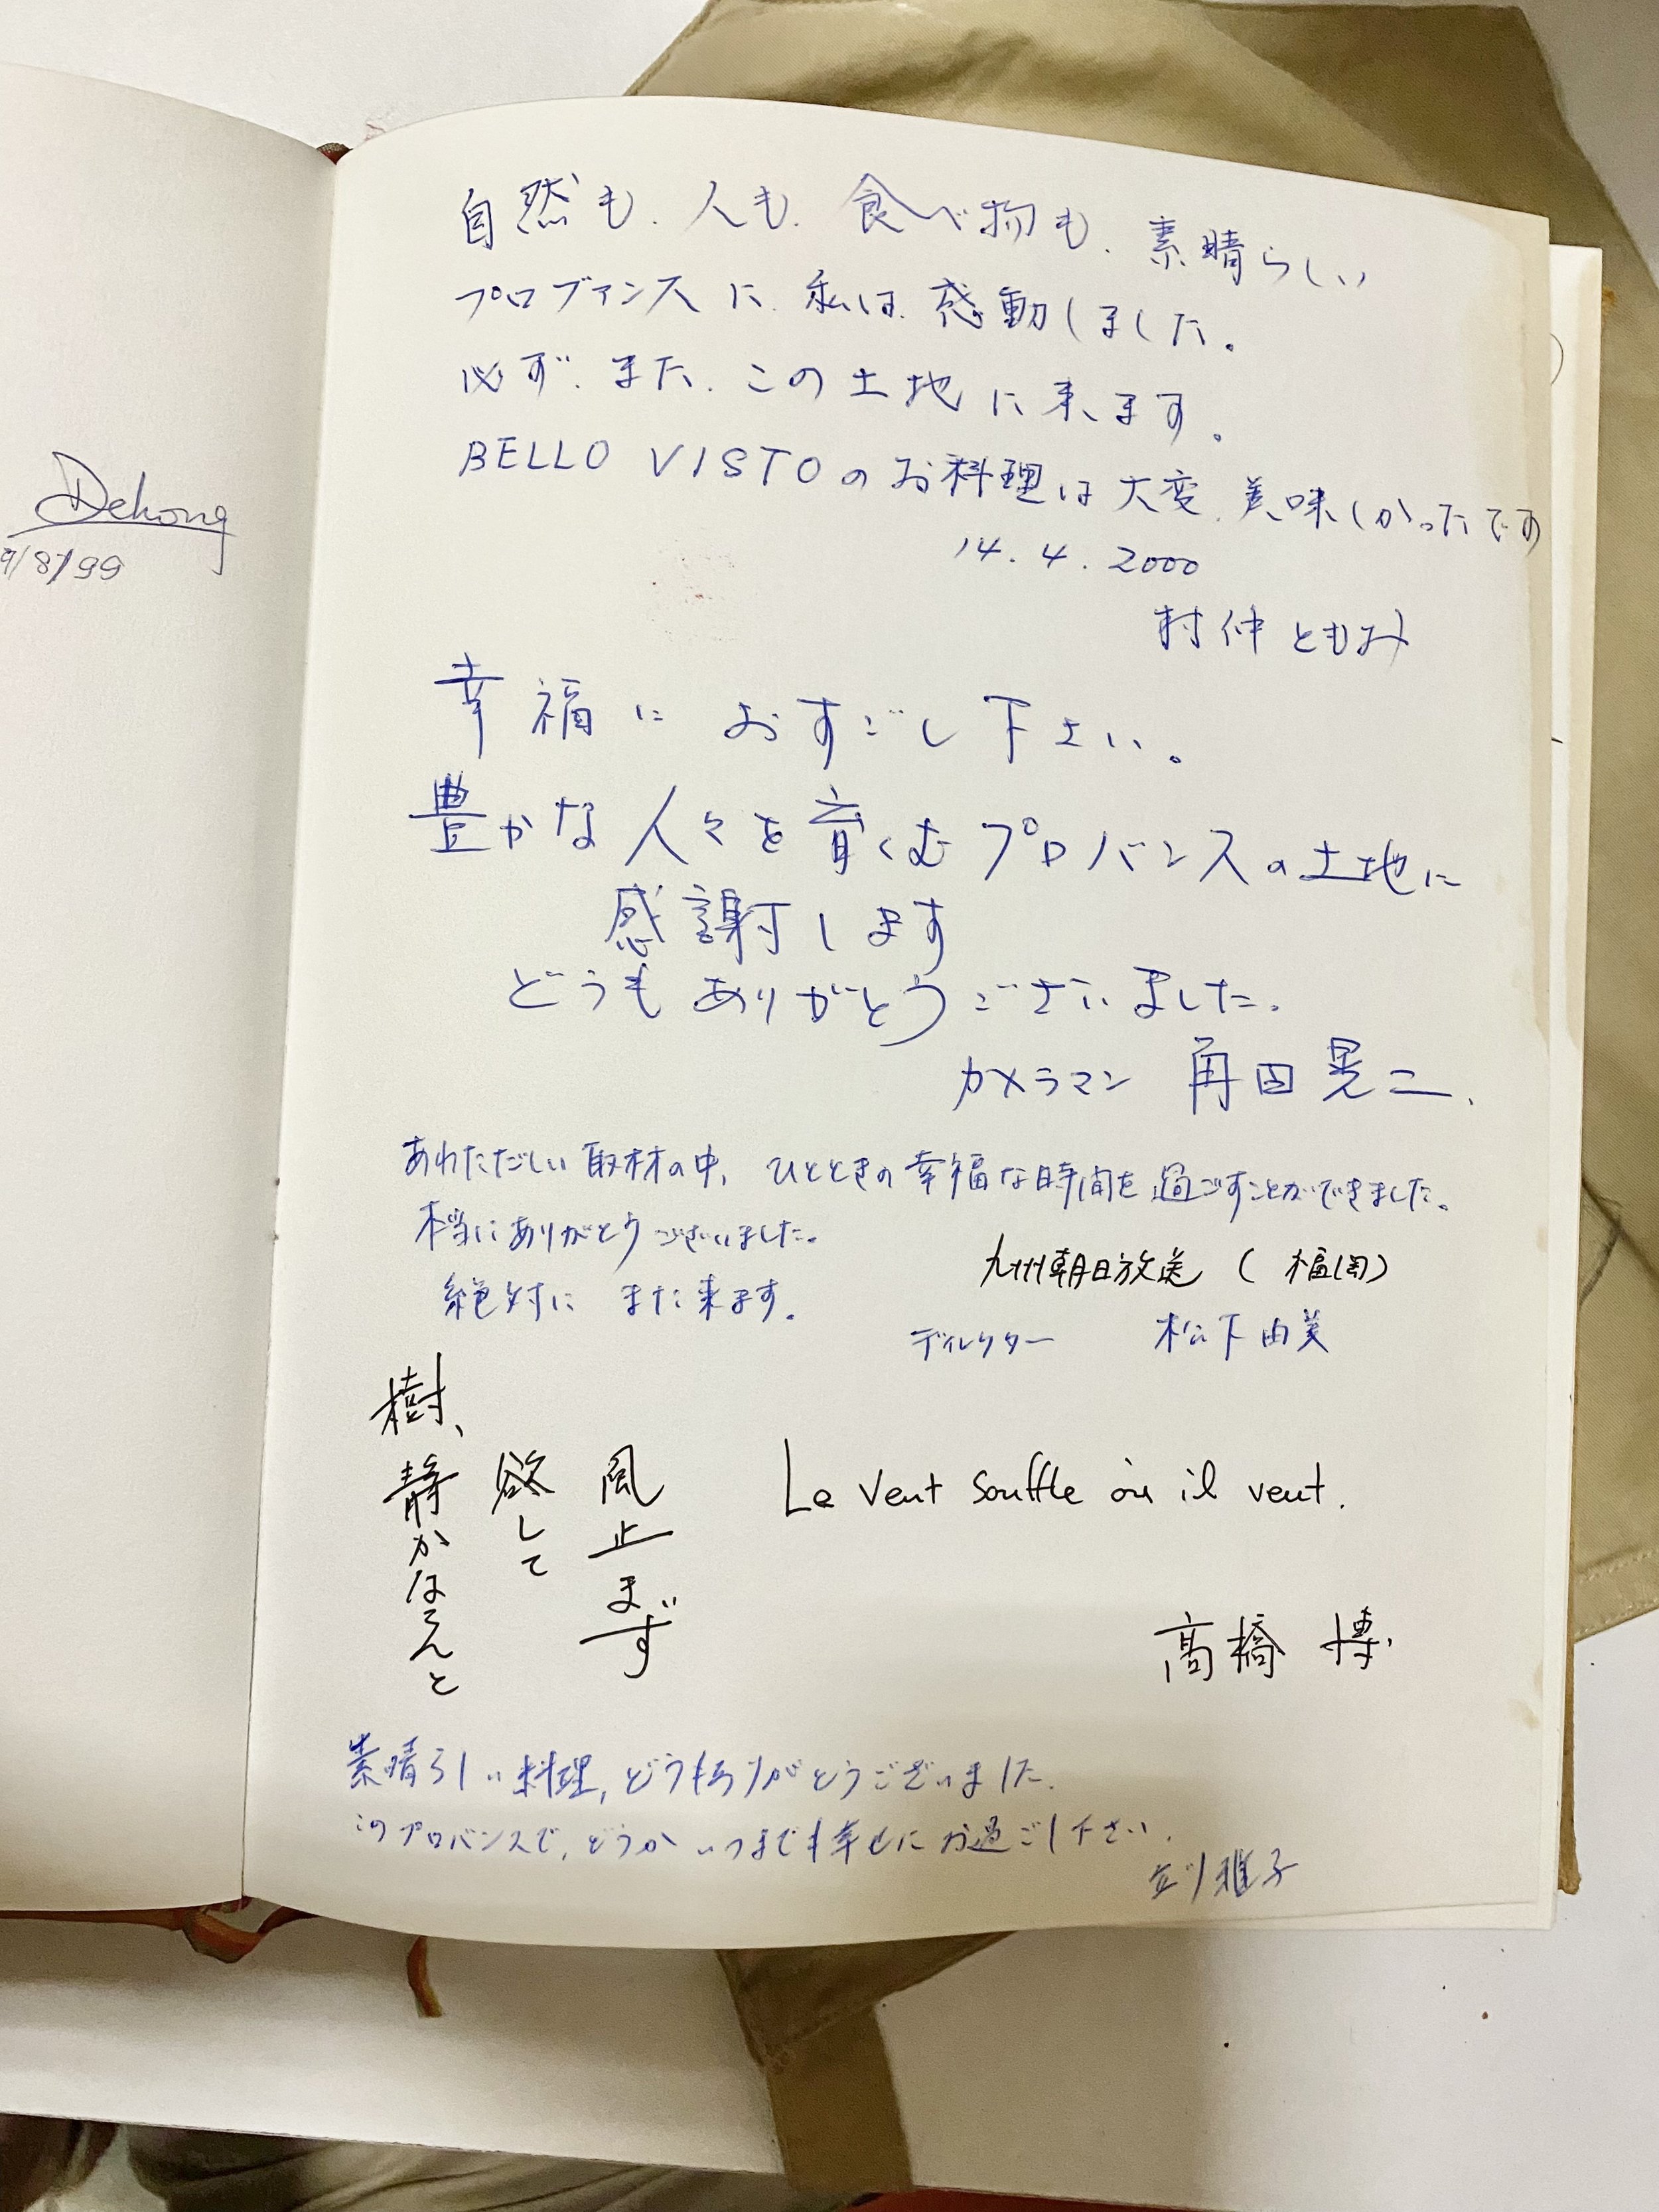 Dehong
9/8/99
自然も、人も、食べ物も、素晴らしい
プロヴァンスに、私は、感動しました。
必ず、また、この土地に来ます。
BELLO VISTOのお料理は大変、美味しかったです
14.4.2000
村仲ともみ
幸福におすごし下さい。
豊かな人々を育くむプロバンスの土地に
感謝します
どうもありがとうございました。
カメラマン 角田晃二、
あわただしい取材の中、ひとときの幸福な時間を過ごすことができました。
本当にありがとうございました。
絶対に また来ます。
九州朝日放送(福岡)
ディレクター 松下由美
樹、静かならんと
欲して
風止まず
Le vent souffle où il veut.
高橋 博
素晴らしい料理、どうもありがとうございました。
このプロバンスで、どうかいつまでも幸せにお過ごし下さい。
雅子